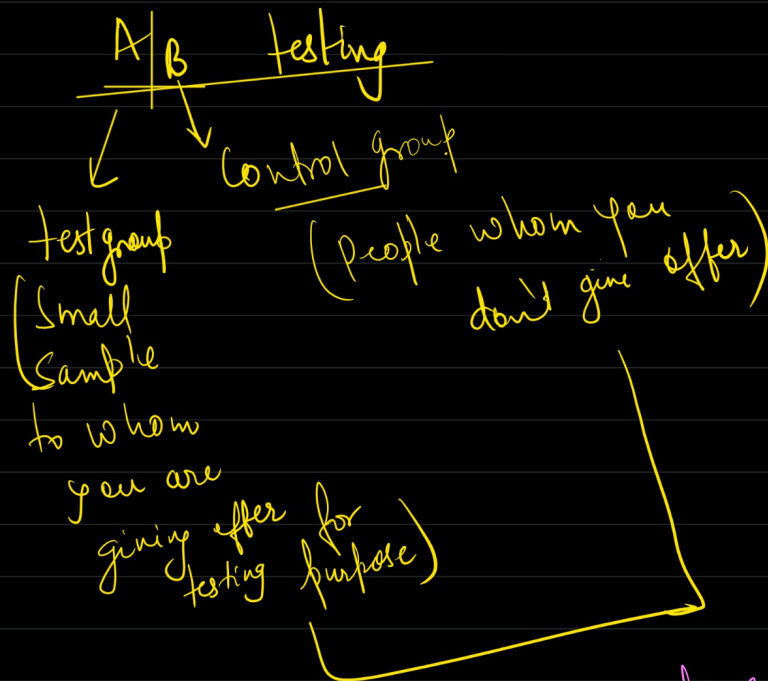 A/B testing
Control group
(People whom you
don't give offer)
test group
(Small
Sample
to whom
you are
giving offer for
testing purpose)